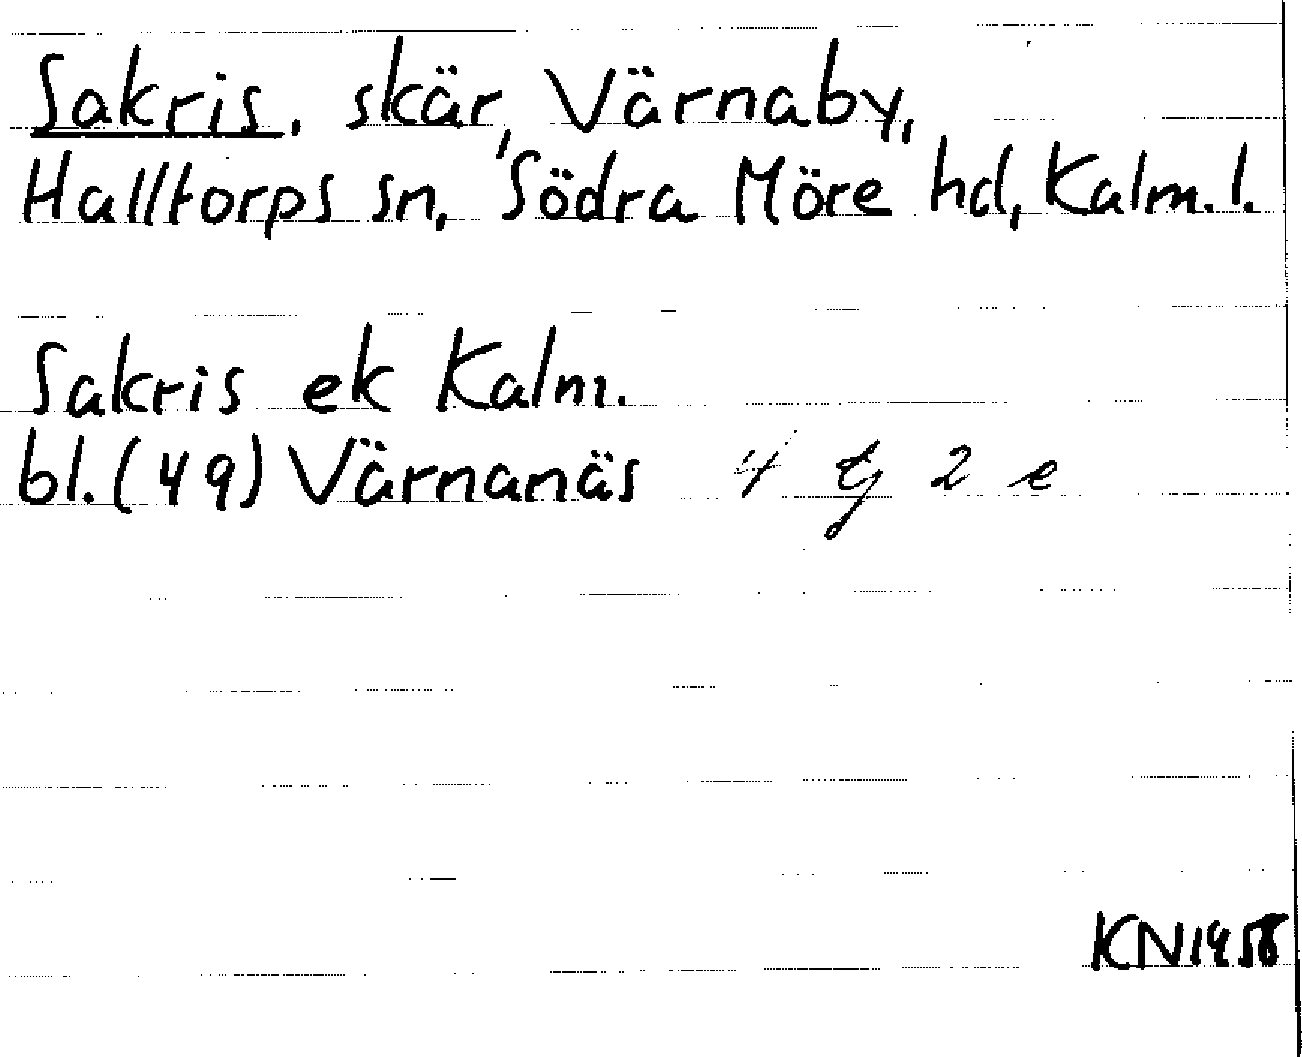 Sakris, skär, Värnaby,
Halltorps sn, Södra Möre hd, Kalm. l.
Sakris ek Kalm.
bl. (49) Värnanäs 4 G 2 e
KN 1958